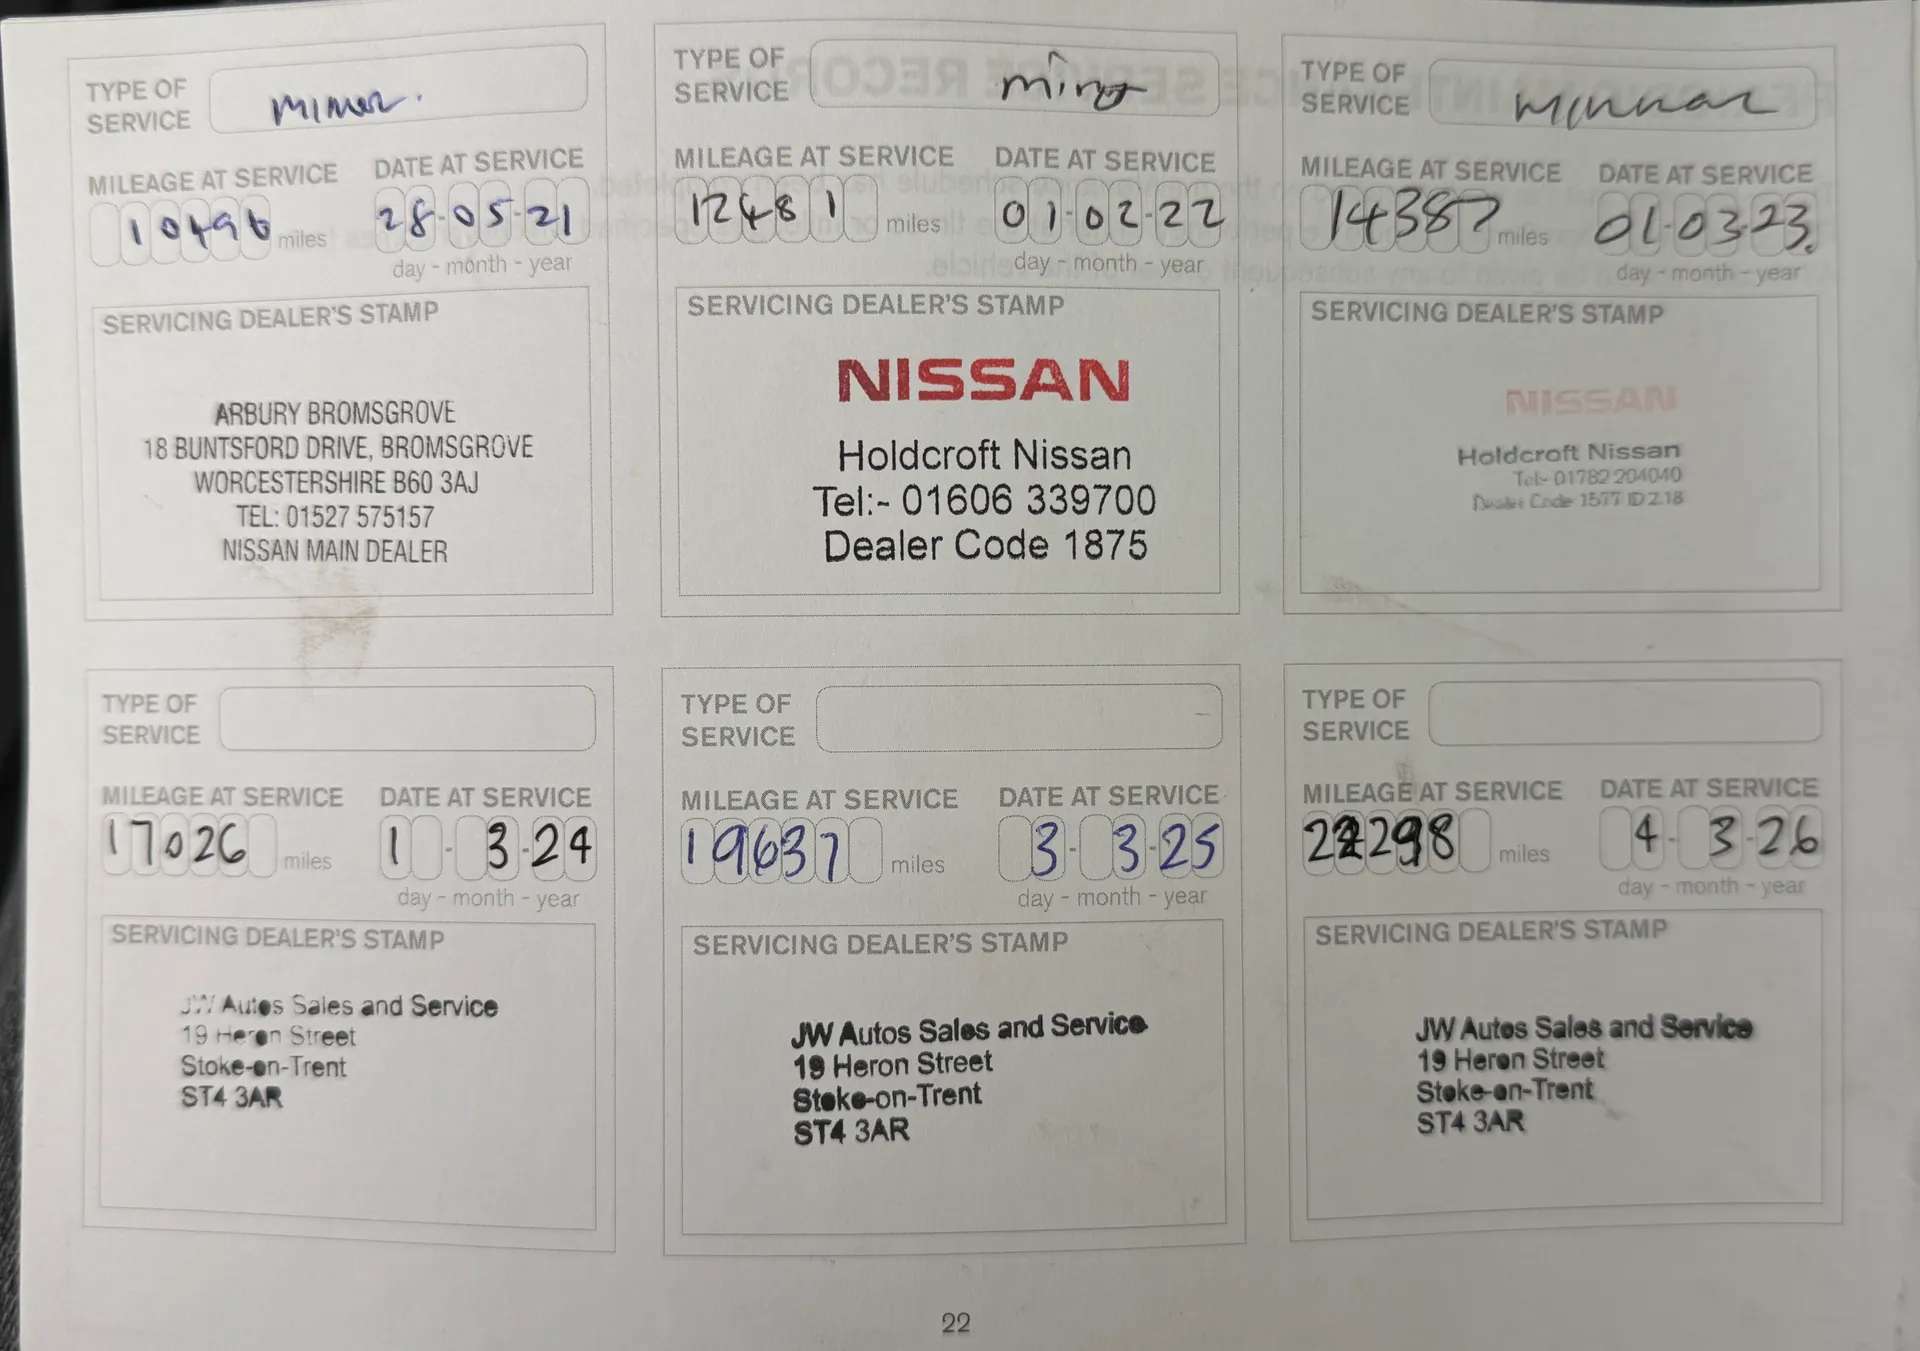 TYPE OF SERVICE minor.
MILEAGE AT SERVICE DATE AT SERVICE
10496 miles 28-05-21
day - month - year
SERVICING DEALER'S STAMP
ARBURY BROMSGROVE
18 BUNTSFORD DRIVE, BROMSGROVE
WORCESTERSHIRE B60 3AJ
TEL: 01527 575157
NISSAN MAIN DEALER
TYPE OF SERVICE minor
MILEAGE AT SERVICE DATE AT SERVICE
12481 miles 01-02-22
day - month - year
SERVICING DEALER'S STAMP
NISSAN
Holdcroft Nissan
Tel:- 01606 339700
Dealer Code 1875
TYPE OF SERVICE
MILEAGE AT SERVICE DATE AT SERVICE
14387 miles 01-03-23
day - month - year
SERVICING DEALER'S STAMP
NISSAN
Holdcroft Nissan
Tel:- 01782 204040
Dealer Code 1577 ID 218
TYPE OF SERVICE
MILEAGE AT SERVICE DATE AT SERVICE
17026 miles 1 - 3-24
day - month - year
SERVICING DEALER'S STAMP
JW Autos Sales and Service
19 Heron Street
Stoke-on-Trent
ST4 3AR
TYPE OF SERVICE
MILEAGE AT SERVICE DATE AT SERVICE
19637 miles 3- 3-25
day - month - year
SERVICING DEALER'S STAMP
JW Autos Sales and Service
19 Heron Street
Stoke-on-Trent
ST4 3AR
TYPE OF SERVICE
MILEAGE AT SERVICE DATE AT SERVICE
miles 4- 3-26
day - month - year
SERVICING DEALER'S STAMP
JW Autos Sales and Service
19 Heron Street
Stoke-on-Trent
ST4 3AR
22